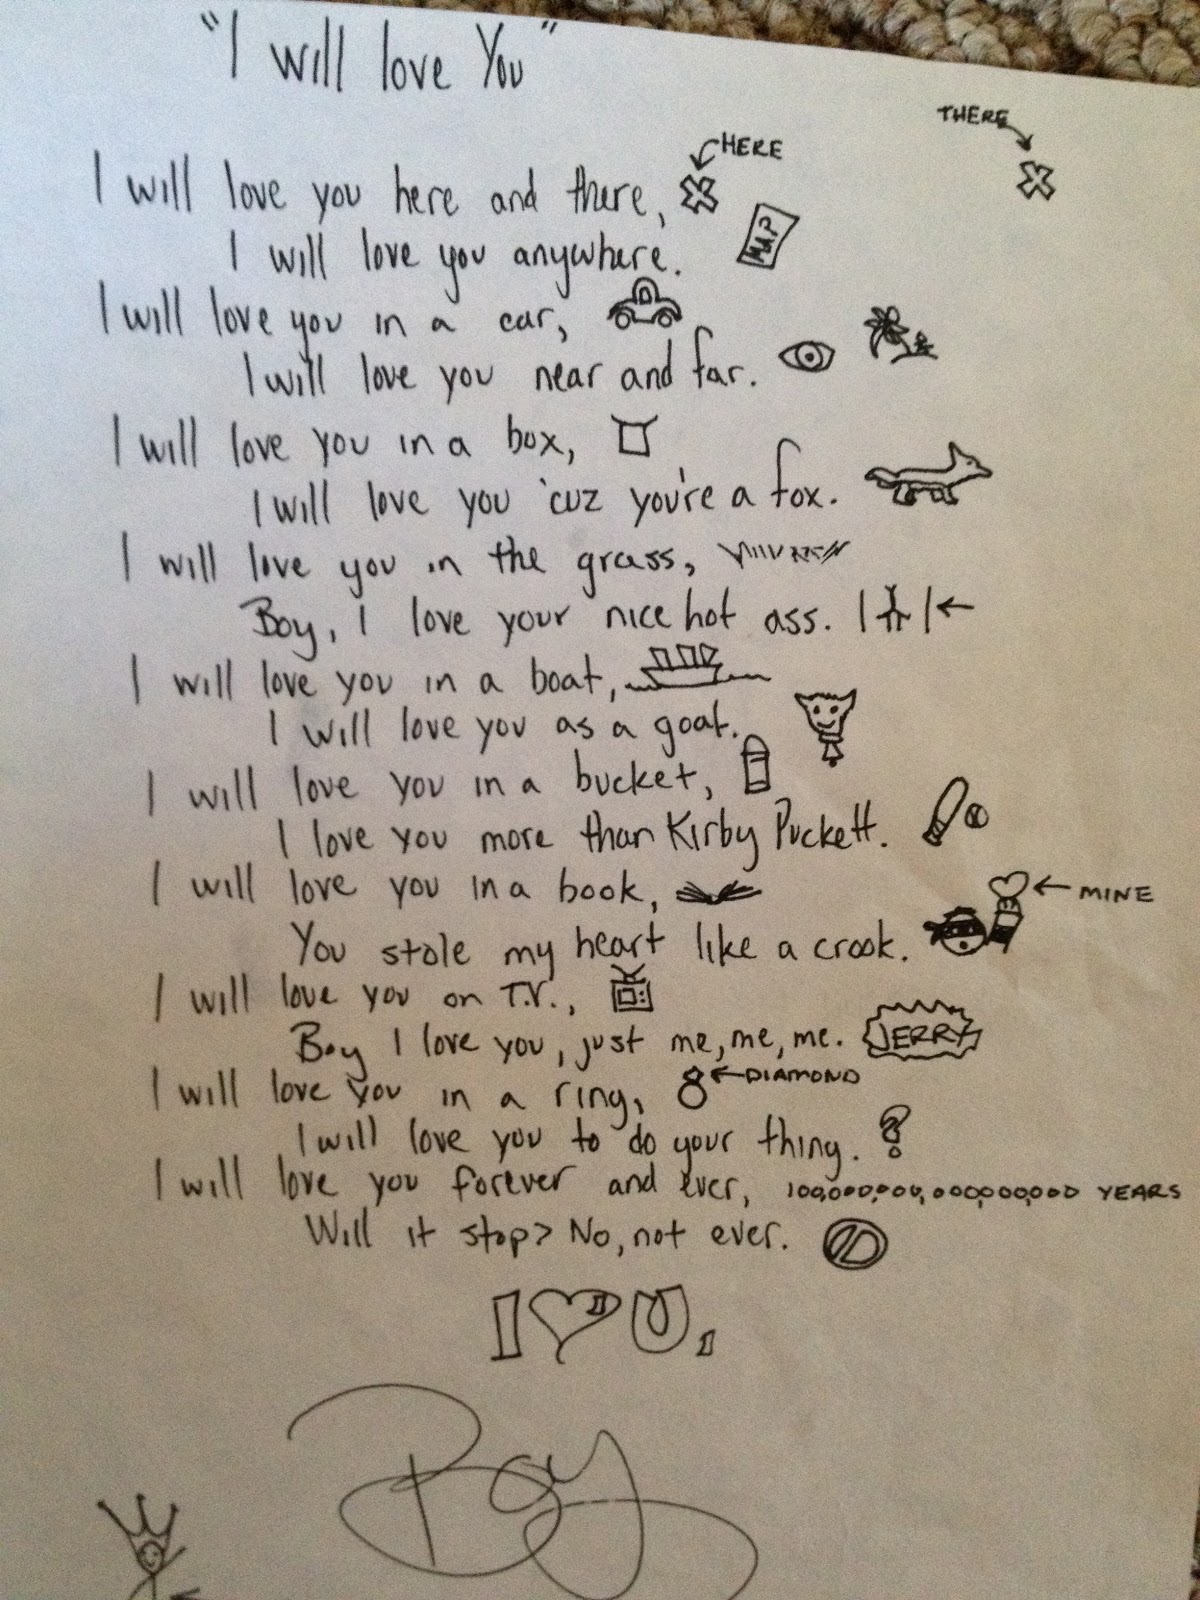 "I will love You"
THERE
HERE
I will love you here and there,
I will love you anywhere.
MAP
I will love you in a car,
I will love you near and far.
I will love you in a box,
I will love you 'cuz you're a fox.
I will love you in the grass,
Boy, I love your nice hot ass.
I will love you in a boat,
I will love you as a goat.
I will love you in a bucket,
I love you more than Kirby Puckett.
I will love you in a book,
MINE
You stole my heart like a crook.
I will love you on T.V.,
Boy I love you, just me, me, me. JERRY
I will love you in a ring, DIAMOND
I will love you to do your thing. ?
I will love you forever and ever, 100,000,000,000,000,000 YEARS
Will it stop? No, not ever.
I ♥ U.